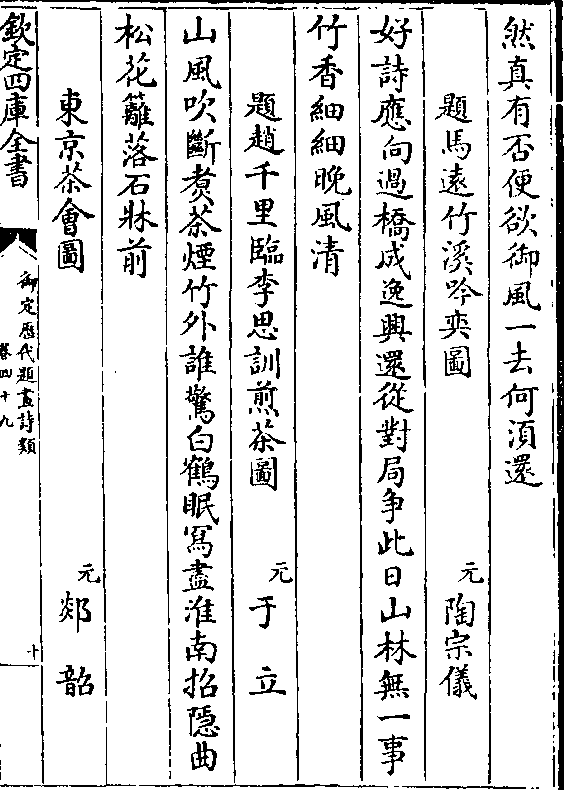 然真有否便欲御風一去何須還
題馬遠竹溪吟奕圖
元 陶宗儀
好詩應向過橋成逸興還從對局争此日山林無一事
竹香細細晚風清
題趙千里臨李思訓煎茶圖
元 于立
山風吹斷煑茶煙竹外誰驚白鶴眠寫盡淮南招隠曲
松花籬落石牀前
東京茶會圖
元 郯韶
欽定四庫全書
御定歷代題畫詩類
卷四十九
十